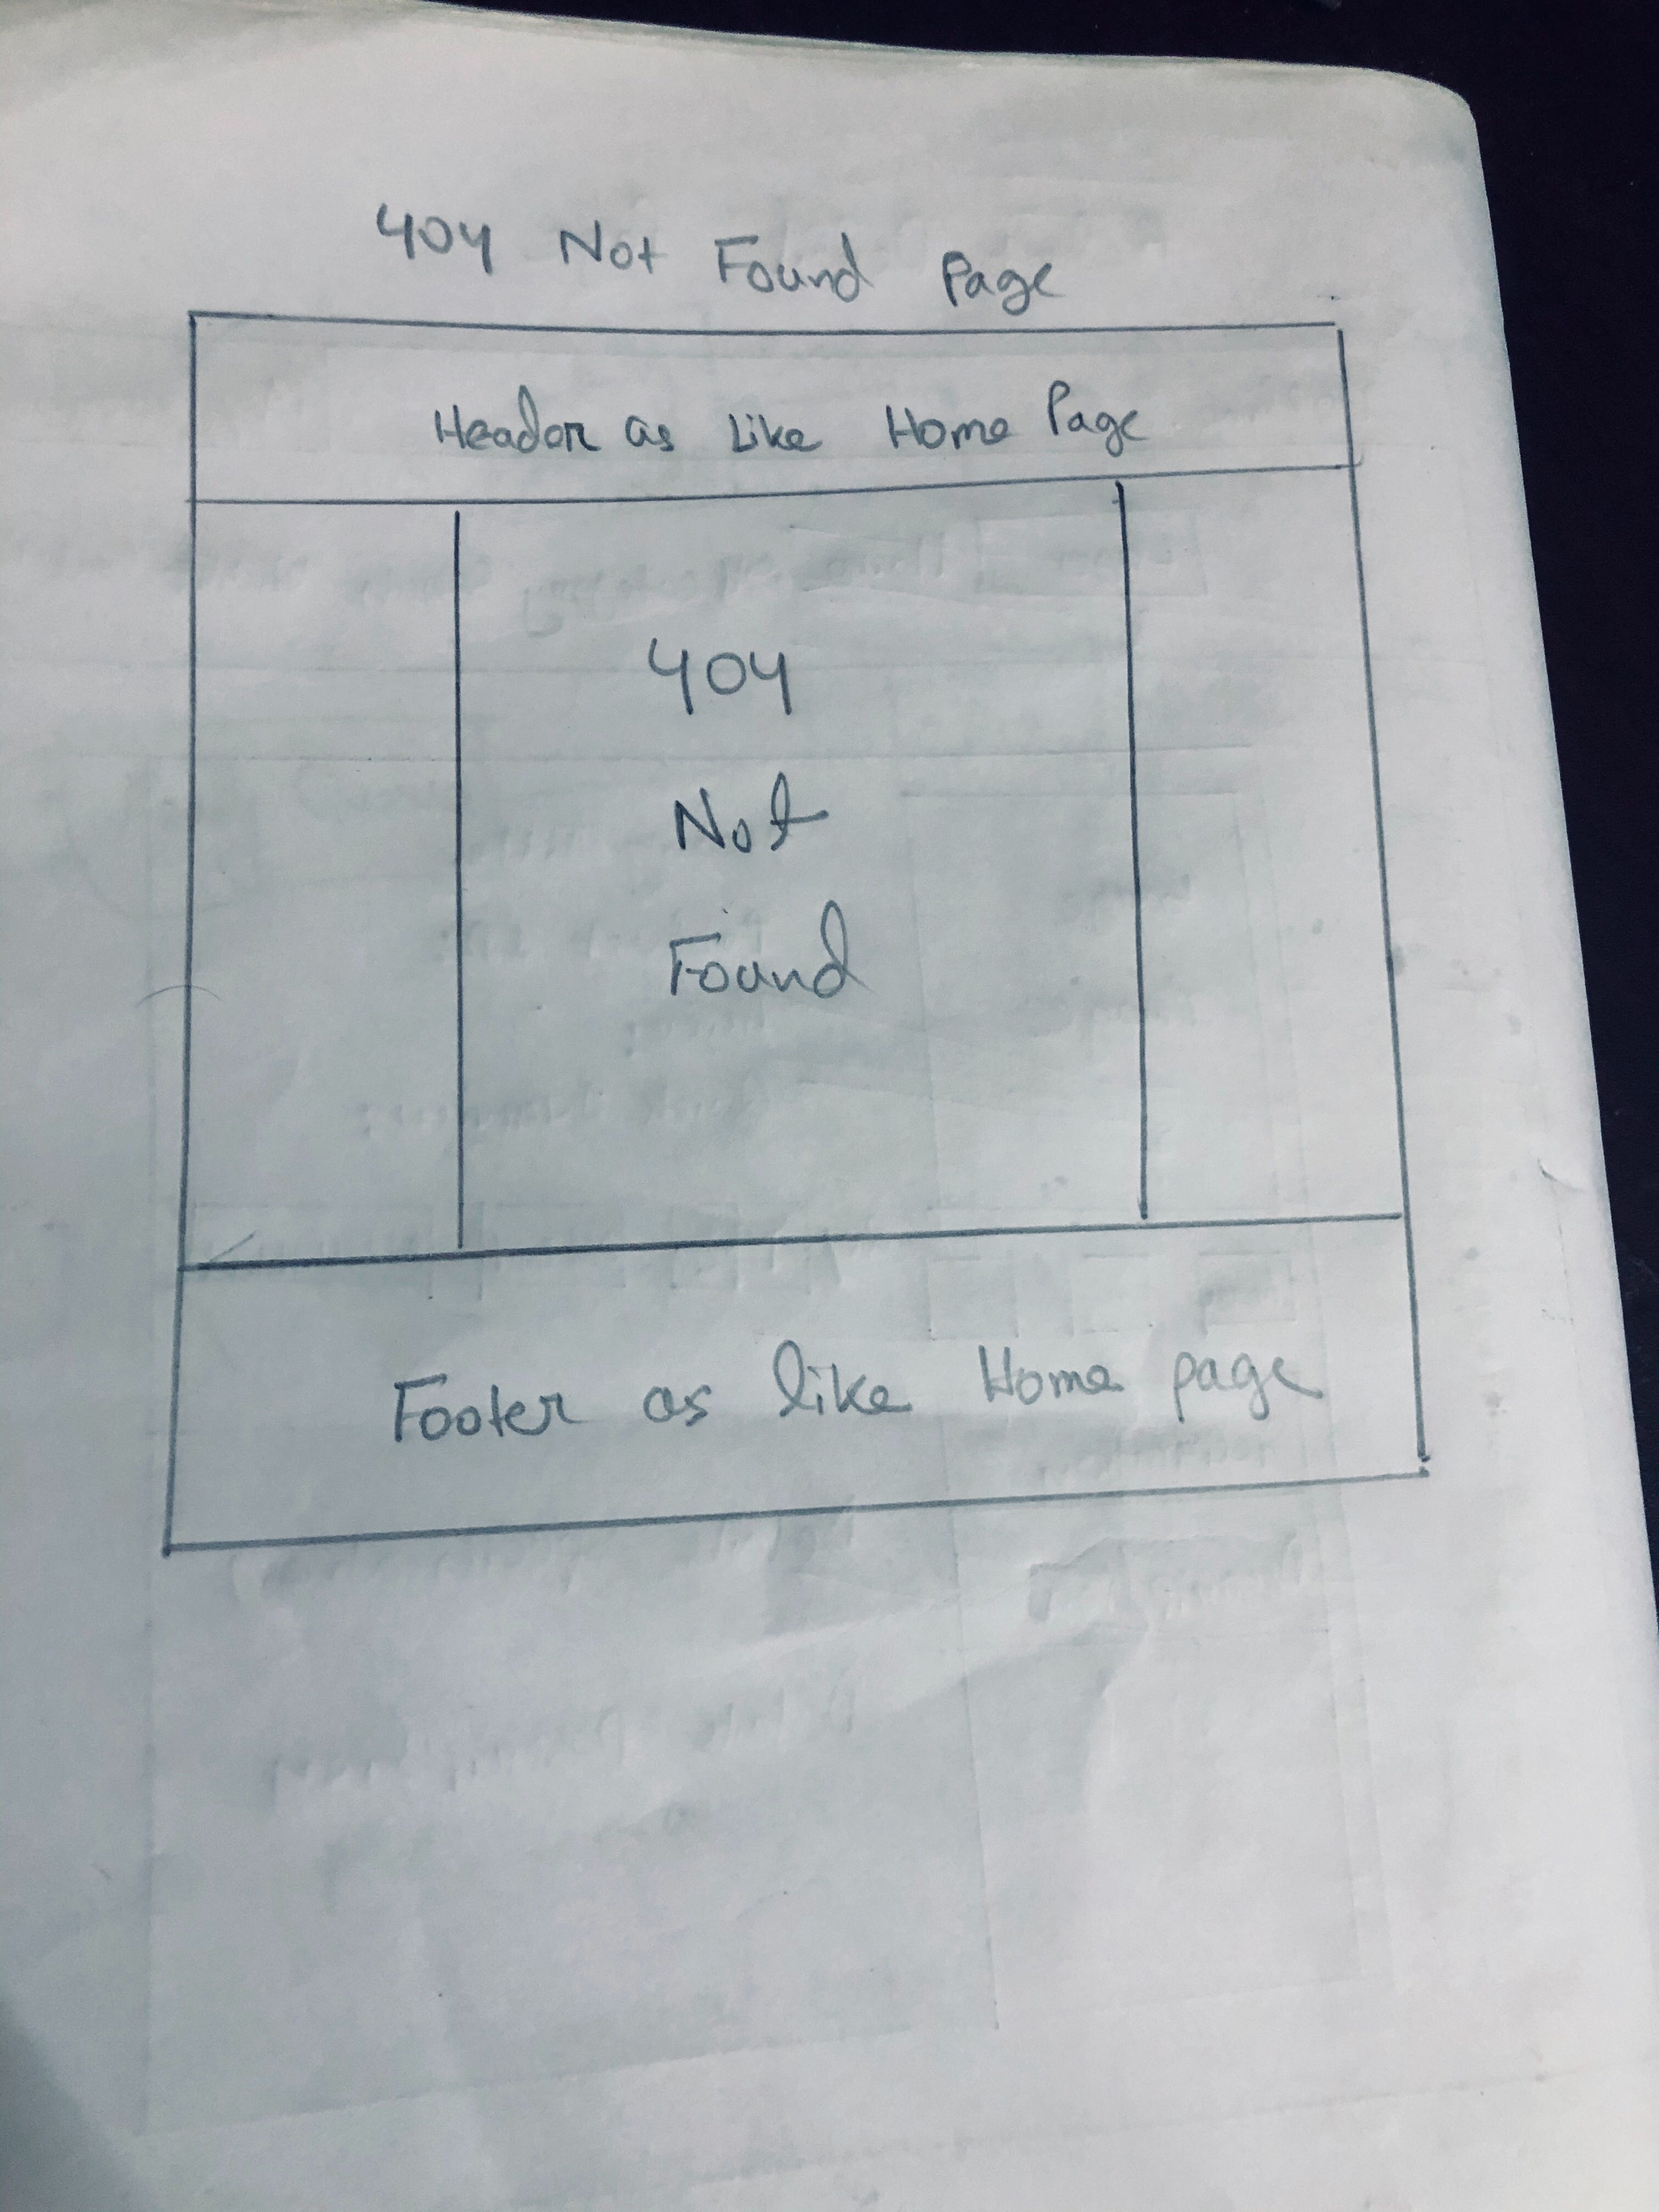 404 Not Found Page
Header as Like Home Page
404
Not
Found
Footer as like Home page